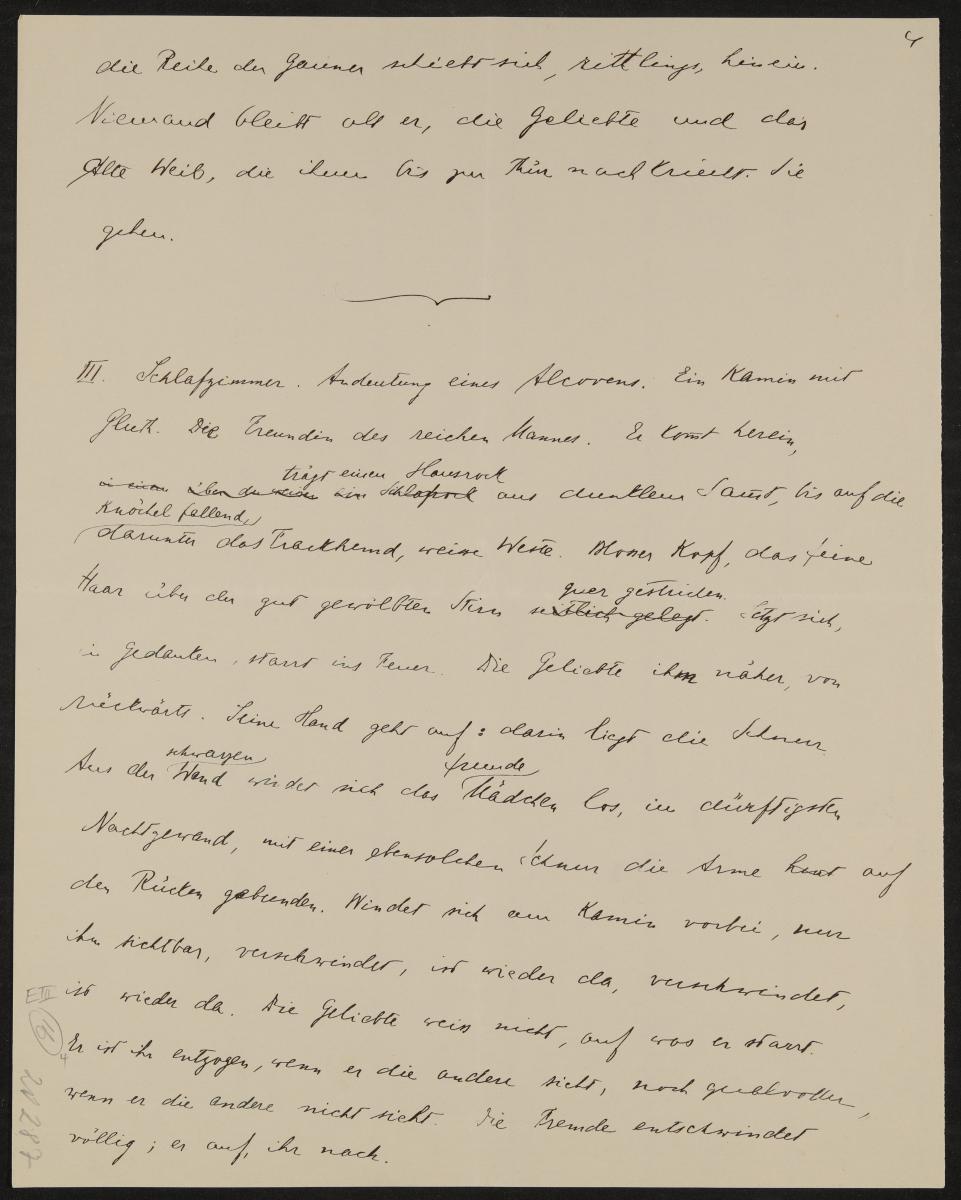 4
die Reihe der Gauner schiebt sich, rittlings, hinein.
Niemand bleibt als er, die Geliebte und das
Alte Weib, die ihnen bis zur Thür nachkriecht. Sie
gehen.
III. Schlafzimmer. Andeutung eines Alcovens. Ein Kamin mit
Gluth. Die Freundin des reichen Mannes. Er komt herein,
trägt einen Hausrock
in einem über der einen Schlafrock aus dunklem Samt, bis auf die
Knöchel fallend,
darunter das Frackhemd, weisse Weste. Blosser Kopf, das feine
quer gestrichen.
Haar über der gut gewölbten Stirn seitlich gelegt. Setzt sich,
in Gedanken, starrt ins Feuer. Die Geliebte ihm näher, von
rückwärts. Seine Hand geht auf: darin liegt die Schnur
schwarzen fremde
Aus der Wand windet sich das Mädchen los, im dürftigsten
Nachtgewand, mit einer ebensolchen Schnur die Arme hart auf
den Rücken gebunden. Windet sich am Kamin vorbei, nur
ihm sichtbar, verschwindet, ist wieder da, verschwindet,
ist wieder da. Die Geliebte weiss nicht, auf was er starrt.
Er ist ihr entzogen, wenn er die andere sieht, noch qualvoller,
wenn er die andere nicht sieht. Die Fremde entschwindet
völlig; er auf, ihr nach.
E III
16
4
20287